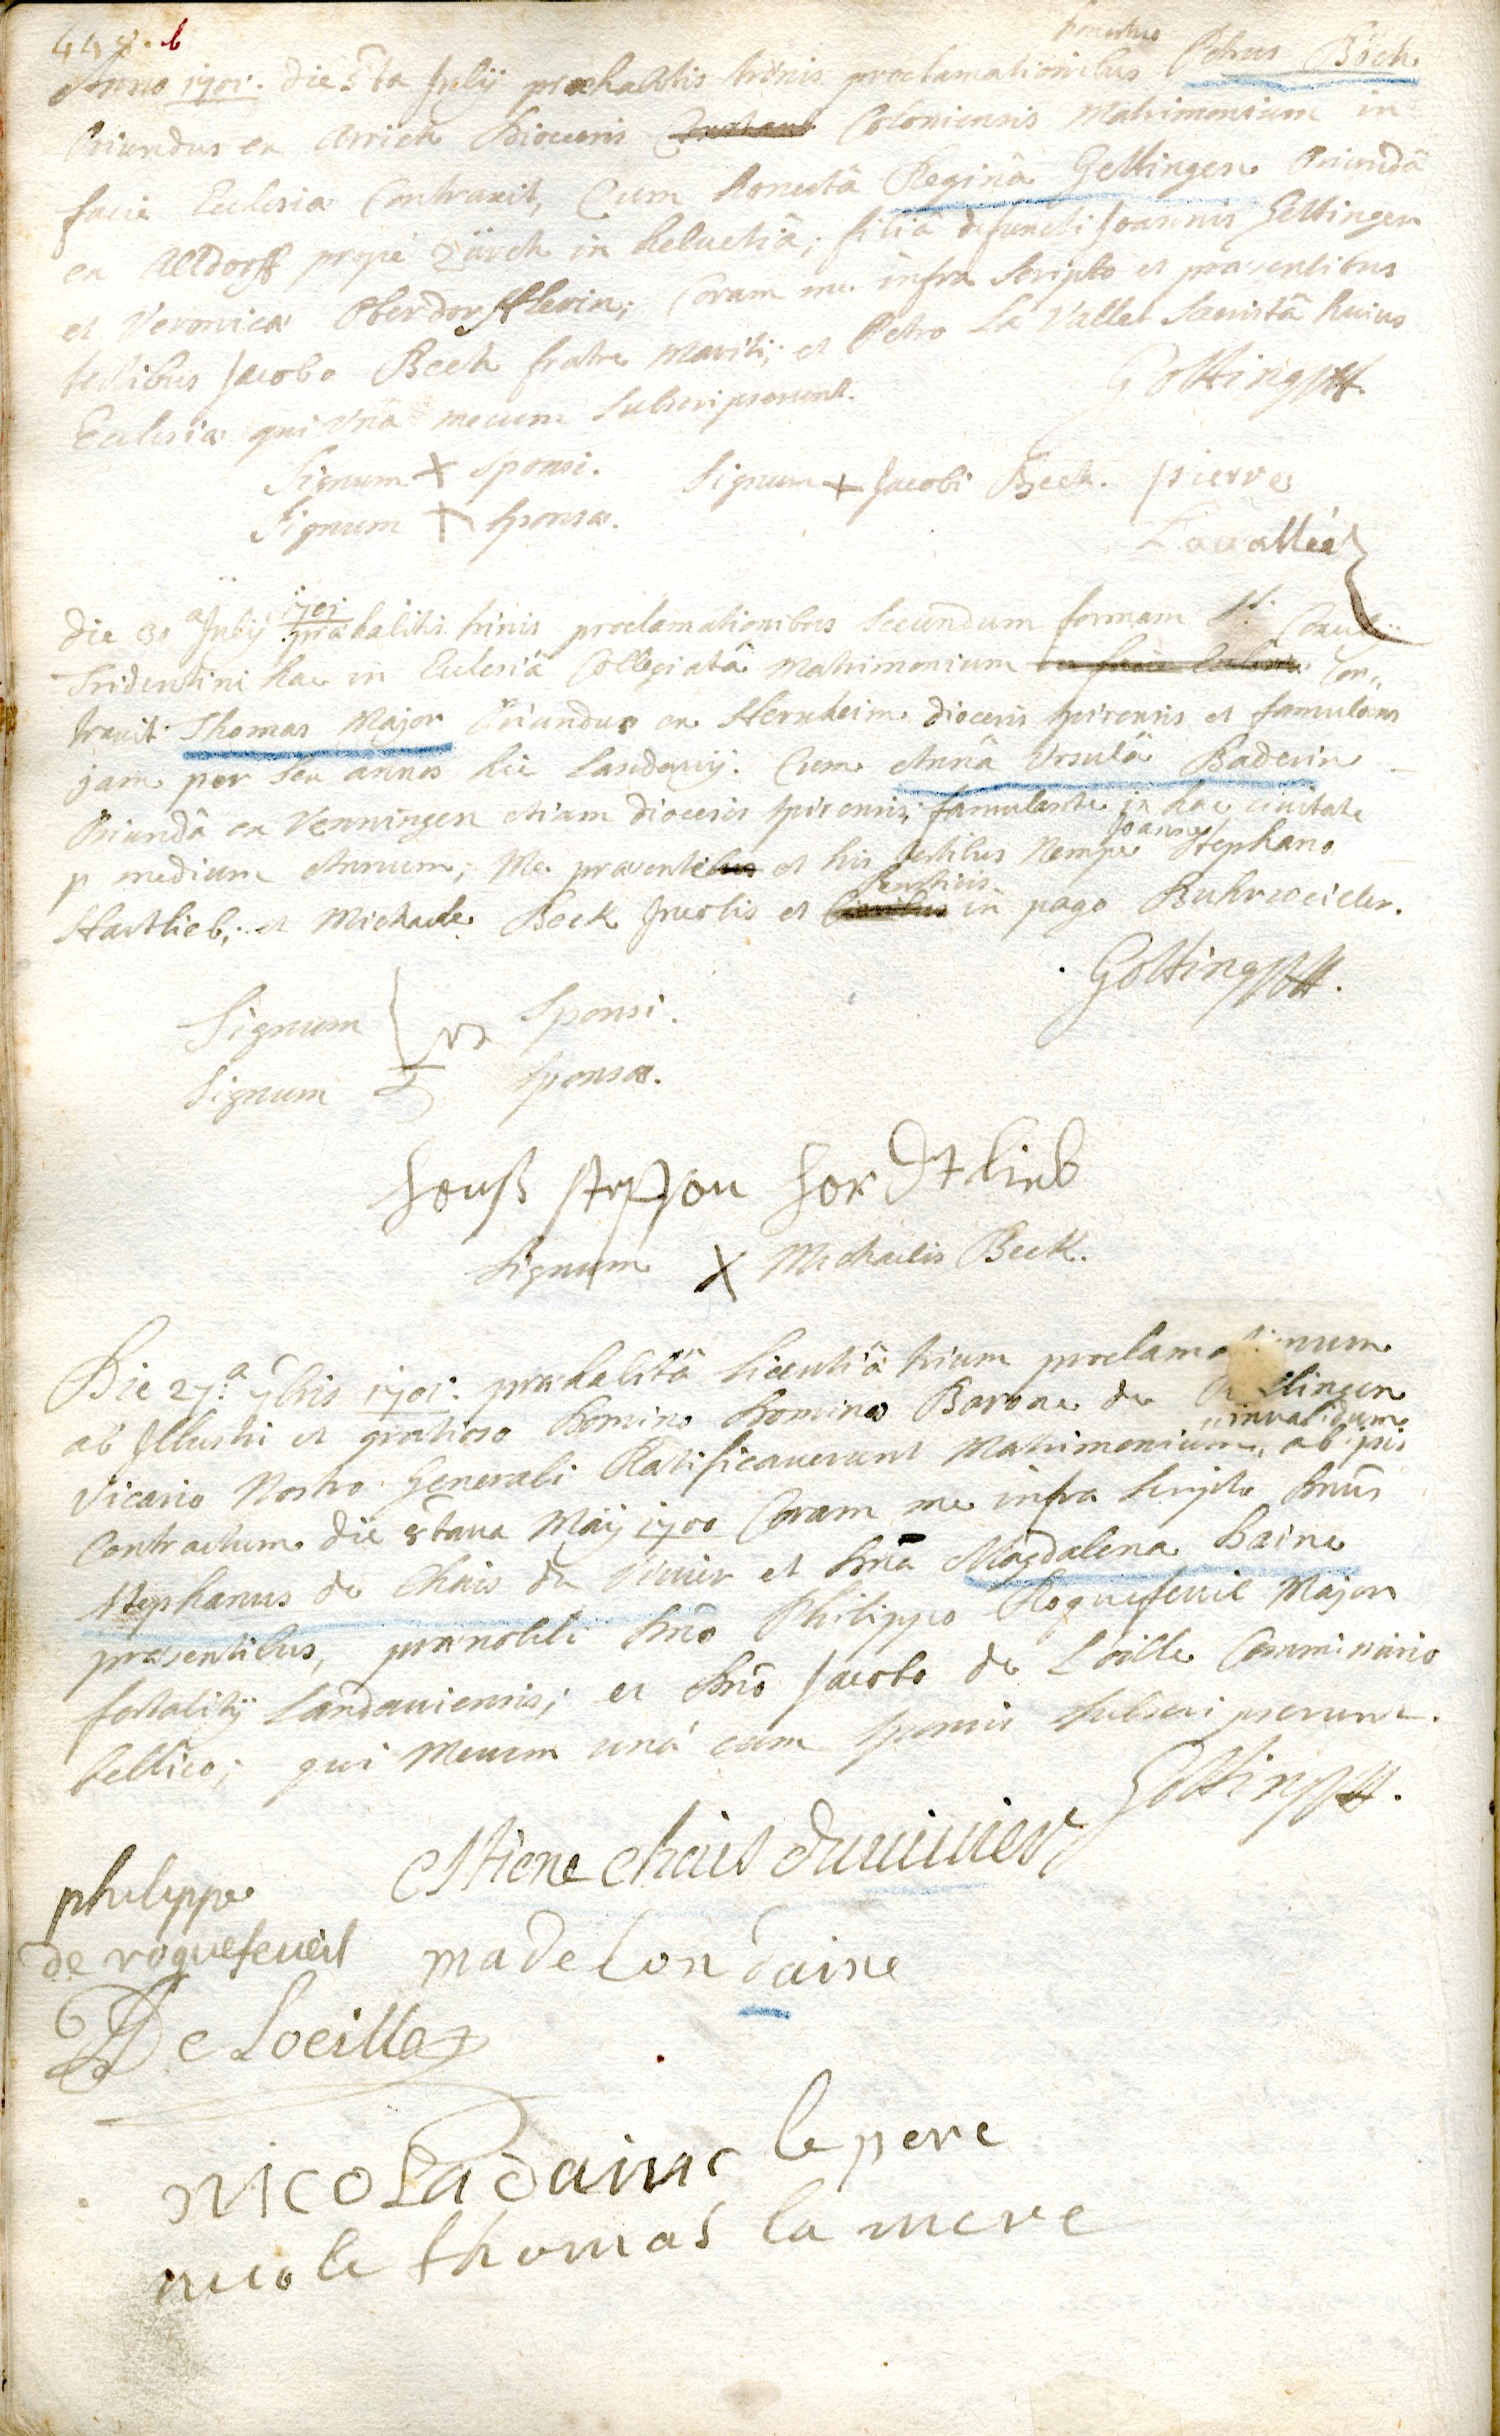 448. b
honestus
Anno 1701. die 5ta Julÿ praehabitis trinis proclamationibus Petrus Böck
Oriundus ex Diocesis Coloniensis Matrimonium in
facie Eclesiae Contraxit, Cum honestâ Reginâ Gettingen Oriundâ
ex Altdorff propè Zürch in helvetiâ, filiâ defuncti Joannis Gettingen
et Veronica Oberdorfflerin; Coram me infra Scripto et praesentibus
testibus Jacobo Beck fratre mariti; et Petro La Vallet Sacristâ huius
Eclesiae qui Vnâ mecum Subscripserunt.
Signum + Sponsi. Signum + Jacobi Beck. pierre
Signum + Sponsae.
Lauallée
die 31a Julÿ 1701 praehabitis trinis proclamationibus Secundum formam St. Concil..
Tridentini hac in Eclesiâ Collegiatâ Matrimonium in facie Eclesiae Con„
traxit Thomas Major Oriundus ex Herxheim diocesis spirensis et famulans
jam per sex annos hic Landavÿ. Cum Annâ Vrsulâ Baderin
Oriundâ ex Venningen etiam diocesis spirensis; famulante in hac civitate
p medium Annum; Me praesentibus et his testibus Nempe Joanne Stephano
Hartlieb; et Michaele Beck Incolis et Rusticis in pago Buhrweiler.
Signum Sponsi.
Signum Sponsae.
Hanß steffan hardtlieb
Signum X Michaelis Beck.
Die 27a 7bris 1701. praehabitâ licentiâ trium proclamationum
ab Illustri et gratioso Domino Domino Barone de
Vicario Nostro Generali Ratificauerunt Matrimonium, invalidum ab ipsis
Contractum die 8taua Maÿ 1700 Coram me infra Scripto Dnus
Stephanus de Chais du Viuier et Dna Magdalena Daine
praesentibus, praenobili Dno Philippo Roquefeuil Major
fortalitÿ Landaviensis; et Dno Jacobo de Loille Commissario
bellico; qui Mecum unâ cum sponsis Subscripserunt.
philippe
de roquefeueil
estiene chais duuiuier
madelon daine
De Loeille
NICOLa daine le pere
nicole thomas la mere